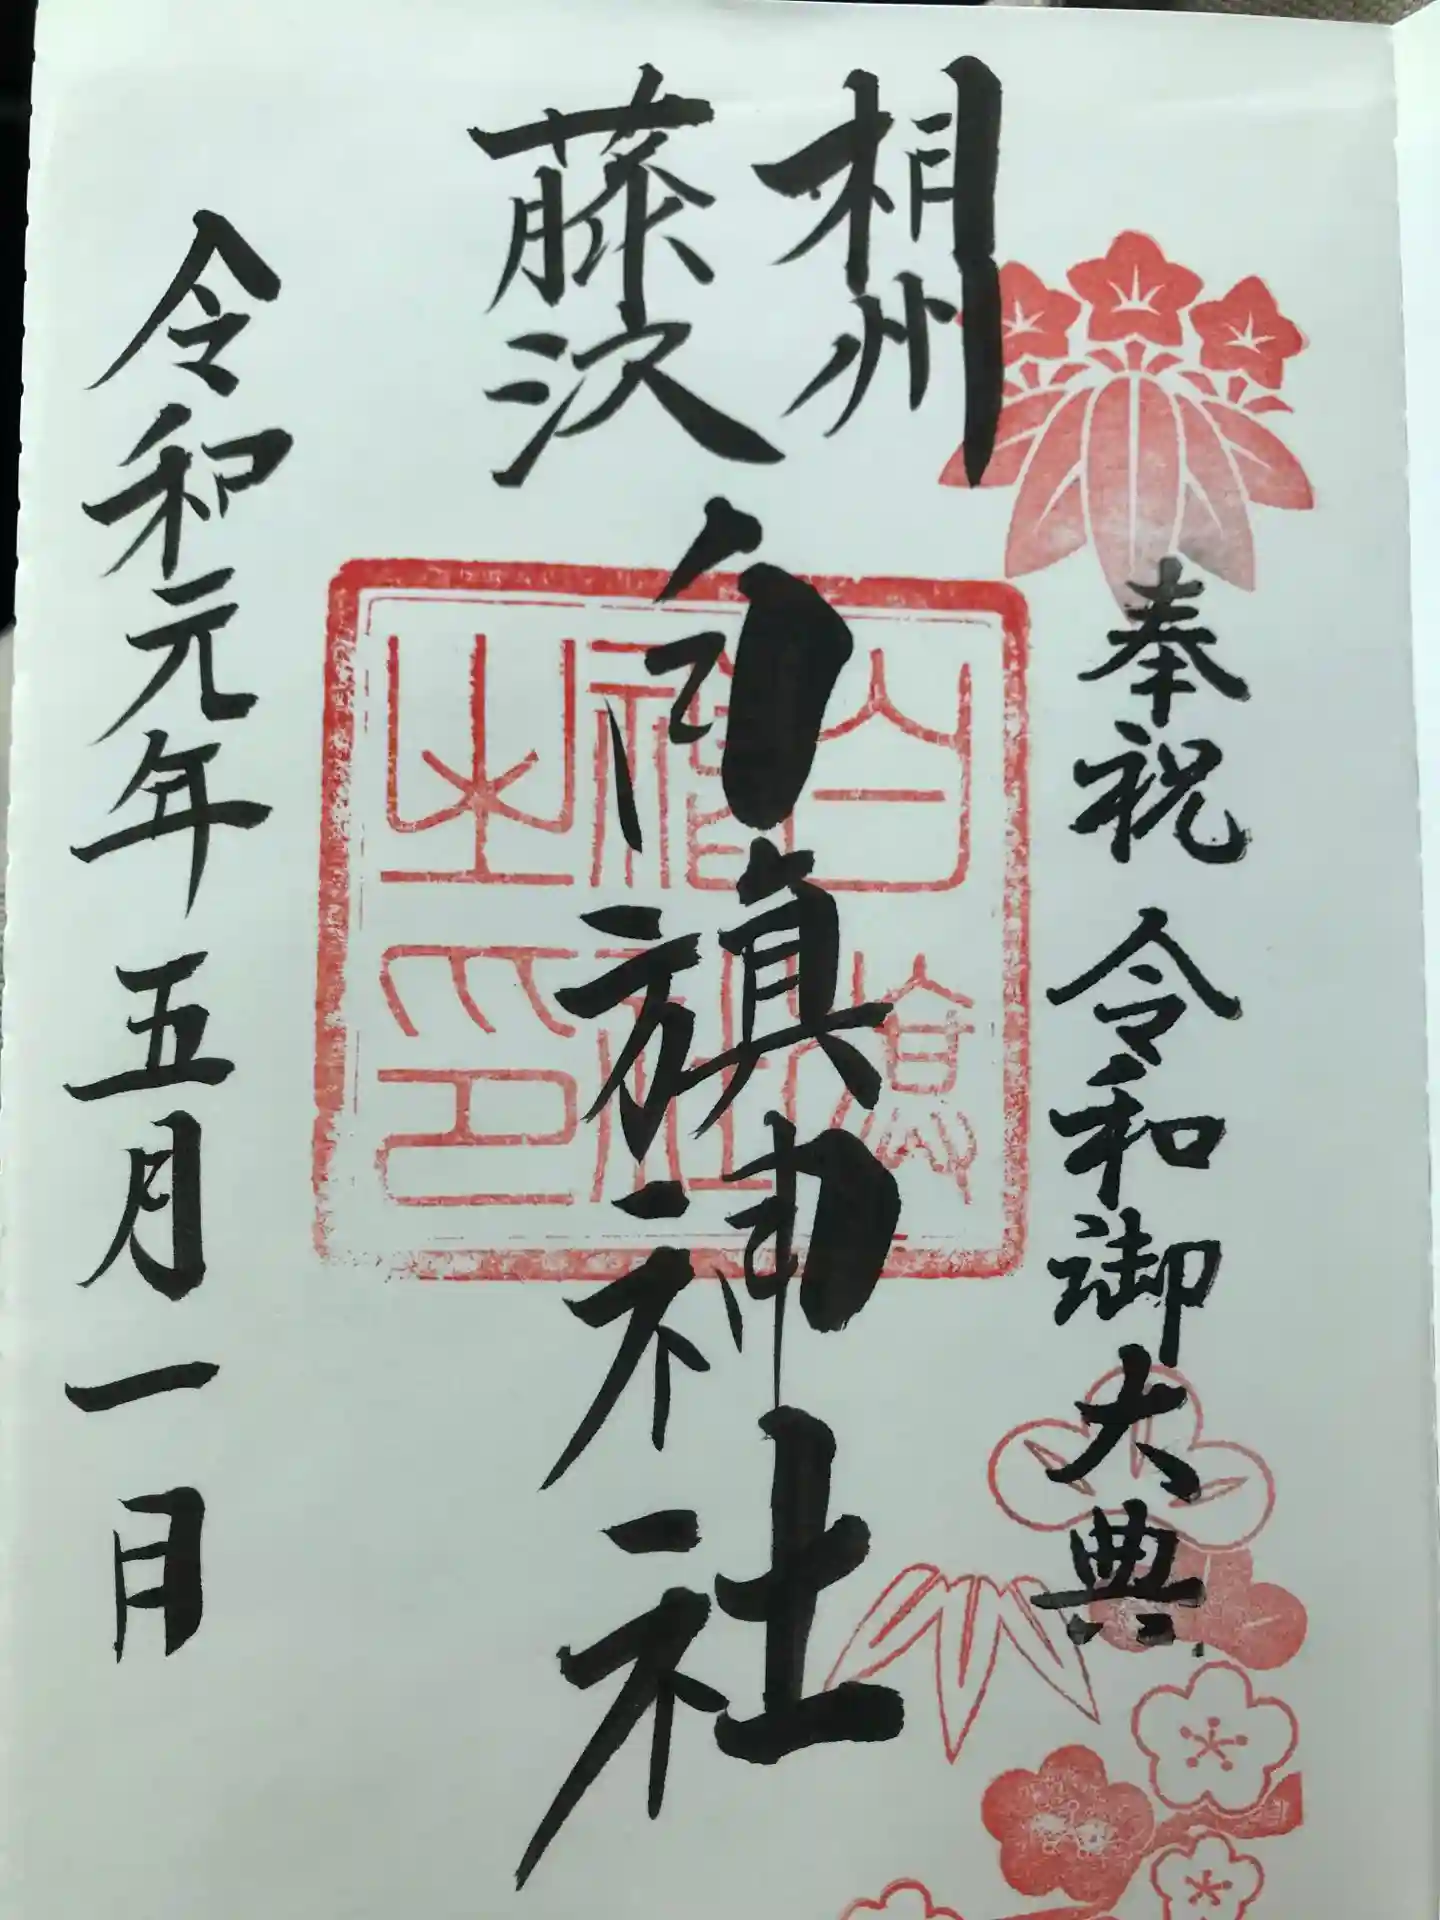 奉祝 令和御大典
相州
藤沢
白旗神社
白旗
神社
之印
令和元年五月一日